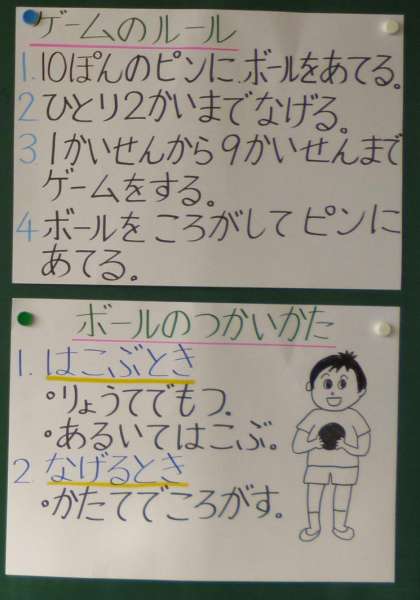 ゲームのルール
1. 10ぽんのピンに、ボールをあてる。
2 ひとり2かいまでなげる。
3 1かいせんから9かいせんまで
ゲームをする。
4 ボールを ころがして ピンに
あてる。
ボールのつかいかた
1. はこぶとき
・りょうてでもつ。
・あるいてはこぶ。
2. なげるとき
・かたてでころがす。